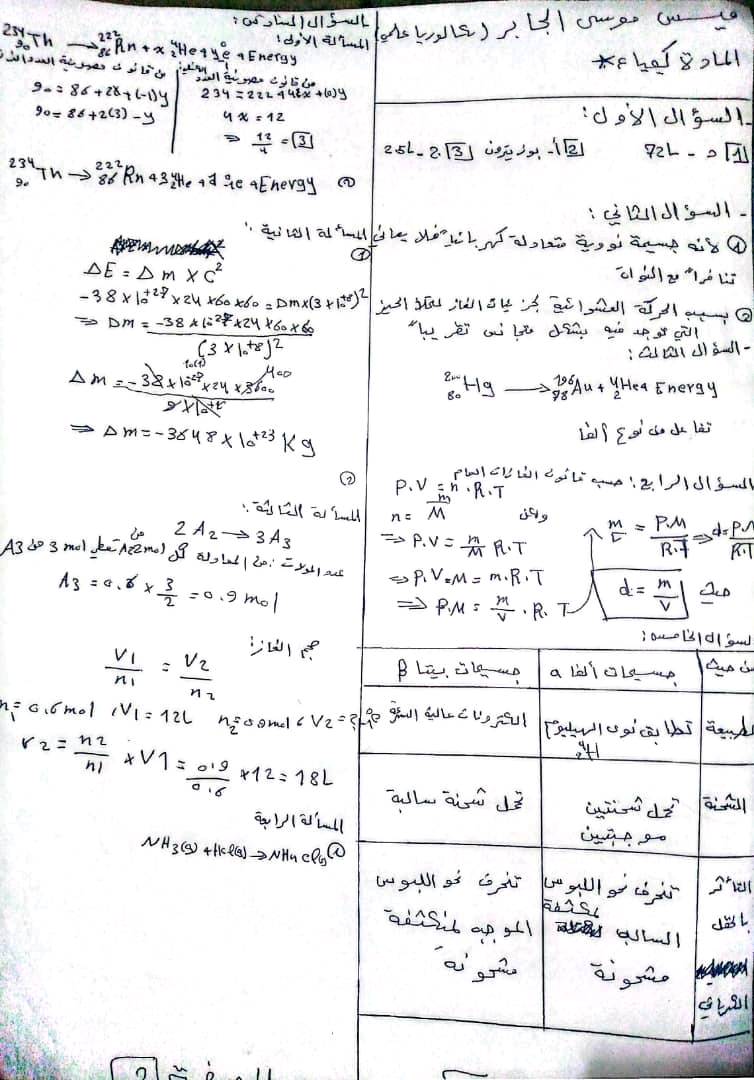 قيس موسى الجابر (بكالوريا علمي)
المادة كيمياء*
- السؤال الأول:
[1] د - 72L [2] أ - بوزيترون [3] 2 - 25L
- السؤال الثاني:
① لأنه جسيمة نووية متعادلة كهربائياً فلا يعاني
تنافراً مع النواة
② بسبب الحركة العشوائية لجزيئات الغاز لملء الحيز
التي توجد فيه بشكل متجانس تقريباً
- السؤال الثالث:
²⁰⁰₈₀Hg ⟶ ¹⁹⁶₇₈Au + ⁴₂He + Energy
تفاعل من نوع ألفا
السؤال الرابع: حسب قانون الغازات العام
P.V = n.R.T
ولكن n = m/M
⇒ P.V = m/M R.T
⇒ P.V = M = m.R.T
⇒ P.M = m/V . R. T
m/V = P.M/R.T ⇒ d = P.M/R.T
حيث d = m/V
سؤال الخامس:
من حيث | جسيمات ألفا α | جسيمات بيتا β
الطبيعة | تطابق نوى الهيليوم ⁴₂He | الكترونات عالية السرعة
الشحنة | تحمل شحنتين موجبتين | تحمل شحنة سالبة
التأثر بالحقل الكهربائي | تنحرف نحو اللبوس السالب لمكثفة مشحونة | تنحرف نحو اللبوس الموجب لمكثفة مشحونة
السؤال السادس:
المسألة الأولى:
²³⁴₉₀Th ⟶ ²²²₈₆Rn + x ⁴₂He + y ⁰₋₁e + Energy
من قانون مصونية العدد الكتلي
234 = 222 + 4x + (0)y
4x = 12
⇒ 12/4 = [3]
من قانون مصونية العدد الذري
90 = 86 + 2x + (-1)y
90 = 86 + 2(3) - y
²³⁴₉₀Th → ²²²₈₆Rn + 3 ⁴₂He + 2 ⁰₋₁e + Energy ②
المسألة الثانية:
①
ΔE = Δm × C²
-38 × 10⁺²⁷ × 24 × 60 × 60 = Δm × (3 × 10⁺⁸)²
⇒ Δm = -38 × 10²⁷ × 24 × 60 × 60 / (3 × 10⁺⁸)²
Δm = -38 × 10²⁷ × 24 × 3600 / 9 × 10⁺¹⁶
⇒ Δm = -3648 × 10⁺²³ Kg
②
المسألة الثالثة:
2 A₂ → 3 A₃
عدد المولات: من المعادلة كل 2 mol من A2 تعطي 3 mol من A3
A₃ = 0.6 × 3/2 = 0.9 mol
حجم الغاز:
V1/n1 = V2/n2
n₁ = 0.6 mol , V1 = 12L n₂ = 0.9 mol , V2 = ?
V2 = n2/n1 × V1 = 0.9/0.6 × 12 = 18L
المسألة الرابعة
① NH₃(g) + HCl(g) → NH₄Cl(s)
الصفحة [2]